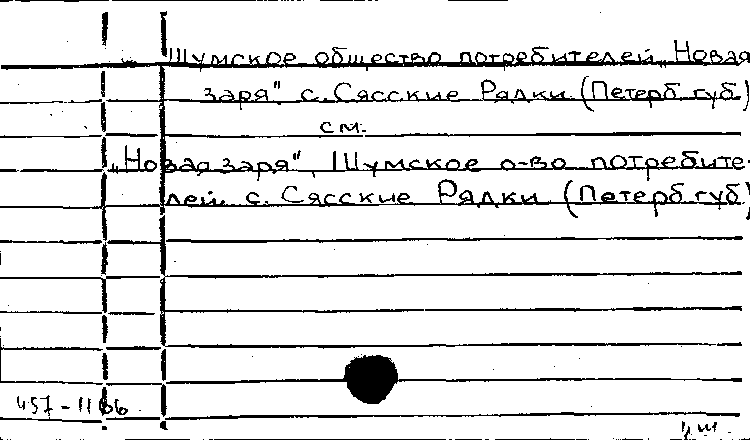 Шумское общество потребителей „Новая
заря". с. Сясские Рядки (Петерб. губ.)
см.
„Новая заря", Шумское о-во потребите-
лей. с. Сясские Рядки (Петерб. губ.)
457-1166